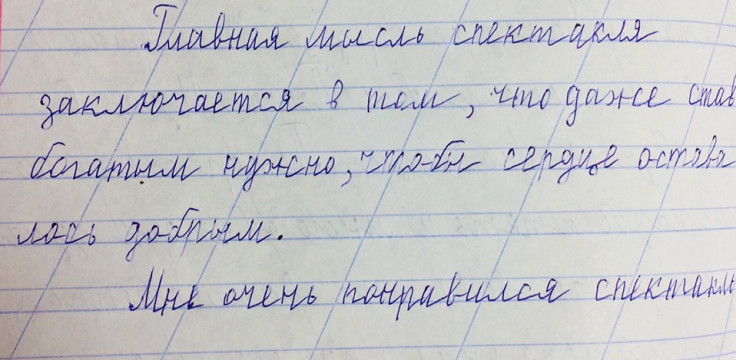 Главная мысль спектакля
заключается в том, что даже став
богатым нужно, чтобы сердце остава
лось добрым.
Мне очень понравился спектакль